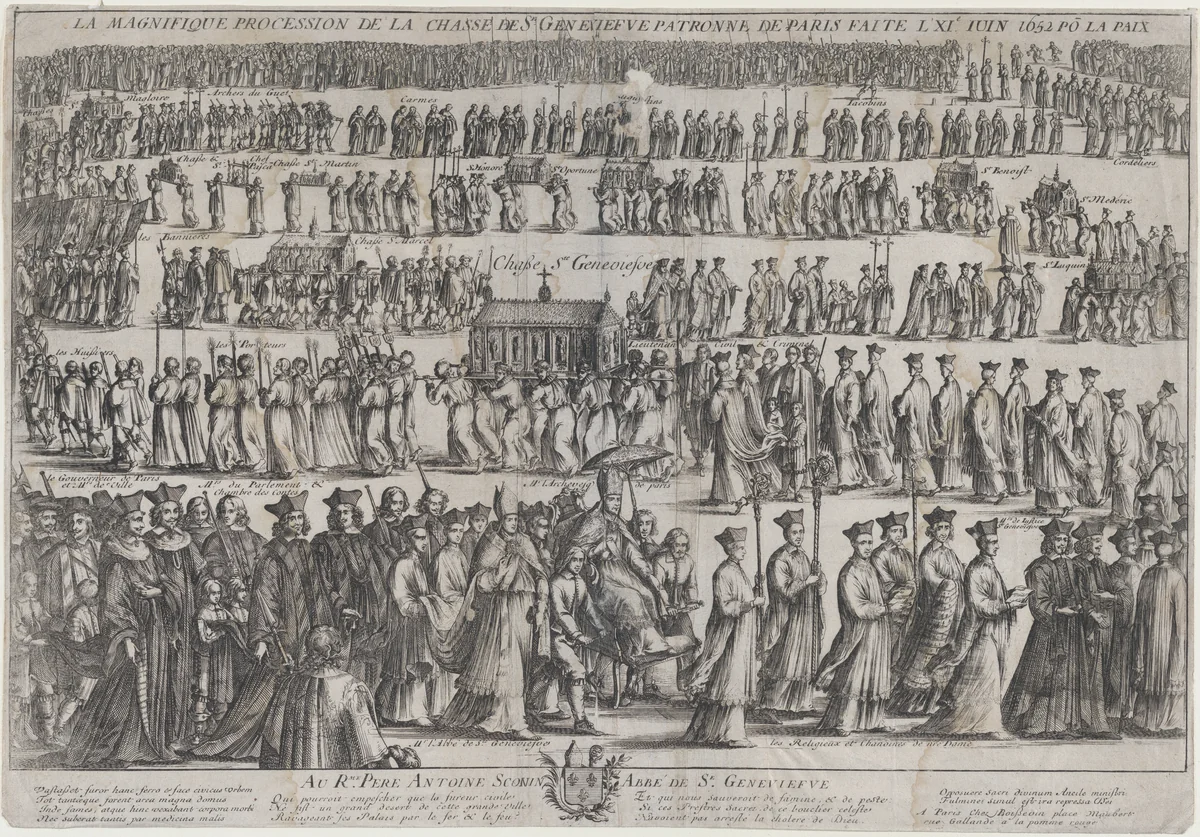 LA MAGNIFIQUE PROCESSION DE LA CHASSE DE Ste GENEVIEFVE PATRONNE DE PARIS FAITE L'XIe IUIN 1652 PO LA PAIX
Magloire
Archers du Guet
Carmes
Augustins
Iacobins
Cordeliers
Chasse
Chasse St Martin
St Honoré
Ste Oportune
St Benoist
St Medéric
les Bannieres
Chasse St Marcel
Chasse Ste Geneviefve
les Huissiers
les Porteurs
Lieutenant Civil & Criminel
le Gouverneur de Paris
et Mrs de Ville
Mrs du Parlement &
Chambre des Contes
Mr l'Archevesq de paris
Mrs de Iustice
Mr l'Abbé de Ste Geneviefve
les Religieux et Chanoines de nre Dame
AU Rme PERE ANTOINE SCONIN ABBÉ DE Ste GENEVIEFVE
Vastasset furor hanc ferro & face civicus Urbem
Tot tantæque forent area magna domus
Inde fames, atque huic vexabant corpora morbi
Nec suberat tantis par medicina malis
Qui pourroit empescher que la fureur civile
Ne fist un grand desert de cette grande Ville
Ravageant ses Palais par le fer & le feu
Et qui nous sauveroit de famine, & de peste
Si ces Prestres Sacrez, le bouclier celeste
N'avoient pas arresté la cholere de Dieu.
Opposuere sacri divinum Ancile ministri
Fulminis simul repressa
A Paris Chez Boissevin place Maubert
rue Gallande a la pomme rouge